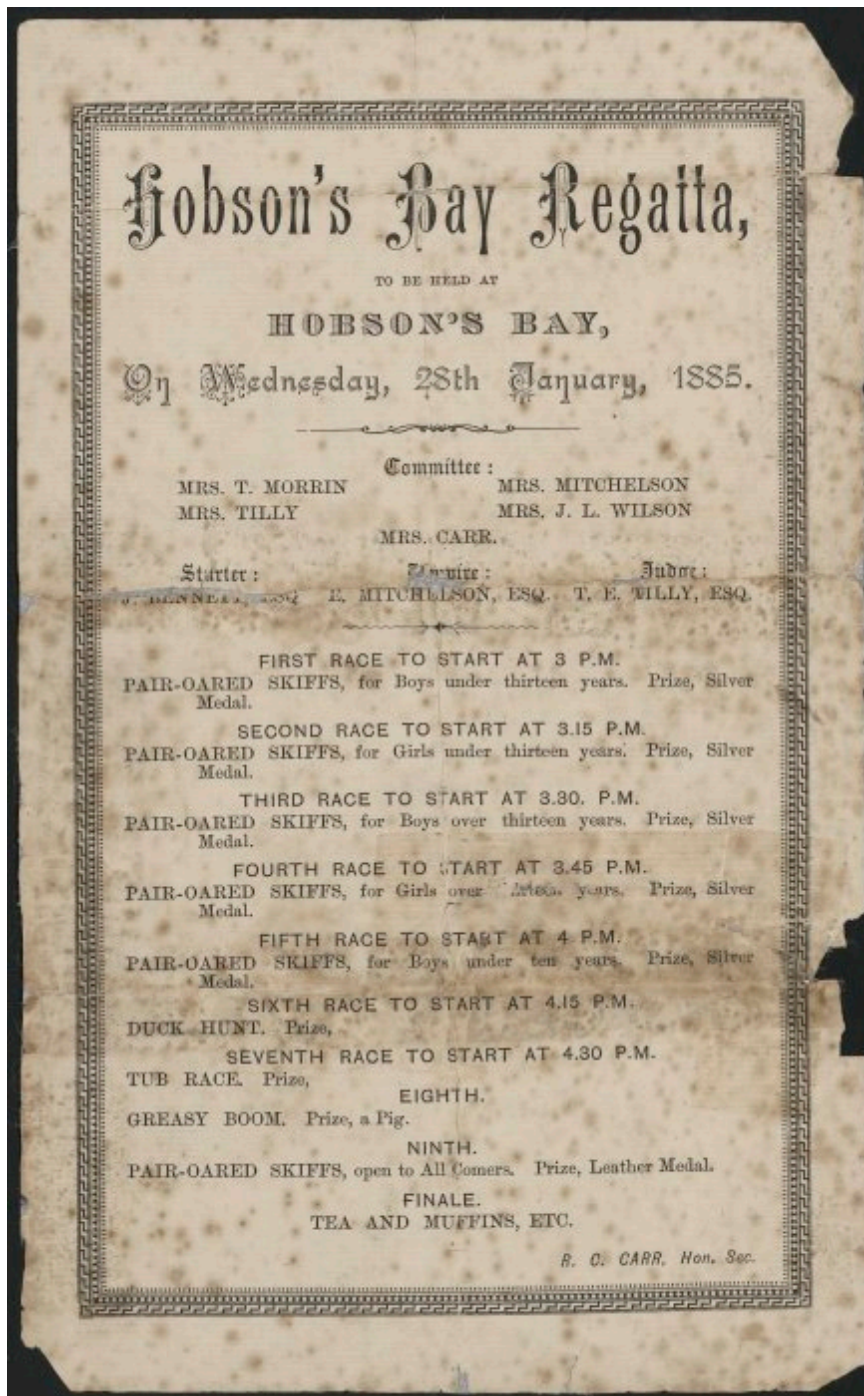 Hobson's Bay Regatta,
TO BE HELD AT
HOBSON'S BAY,
On Wednesday, 28th January, 1885.
Committee :
MRS. T. MORRIN MRS. MITCHELSON
MRS. TILLY MRS. J. L. WILSON
MRS. CARR.
Starter : Umpire : Judge :
J. BENNETT, ESQ E. MITCHELSON, ESQ. T. E. TILLY, ESQ.
FIRST RACE TO START AT 3 P.M.
PAIR-OARED SKIFFS, for Boys under thirteen years. Prize, Silver
Medal.
SECOND RACE TO START AT 3.15 P.M.
PAIR-OARED SKIFFS, for Girls under thirteen years. Prize, Silver
Medal.
THIRD RACE TO START AT 3.30. P.M.
PAIR-OARED SKIFFS, for Boys over thirteen years. Prize, Silver
Medal.
FOURTH RACE TO START AT 3.45 P.M.
PAIR-OARED SKIFFS, for Girls over years. Prize, Silver
Medal.
FIFTH RACE TO START AT 4 P.M.
PAIR-OARED SKIFFS, for Boys under ten years. Prize, Silver
Medal.
SIXTH RACE TO START AT 4.15 P.M.
DUCK HUNT. Prize,
SEVENTH RACE TO START AT 4.30 P.M.
TUB RACE. Prize,
EIGHTH.
GREASY BOOM. Prize, a Pig.
NINTH.
PAIR-OARED SKIFFS, open to All Comers. Prize, Leather Medal.
FINALE.
TEA AND MUFFINS, ETC.
R. C. CARR, Hon. Sec.